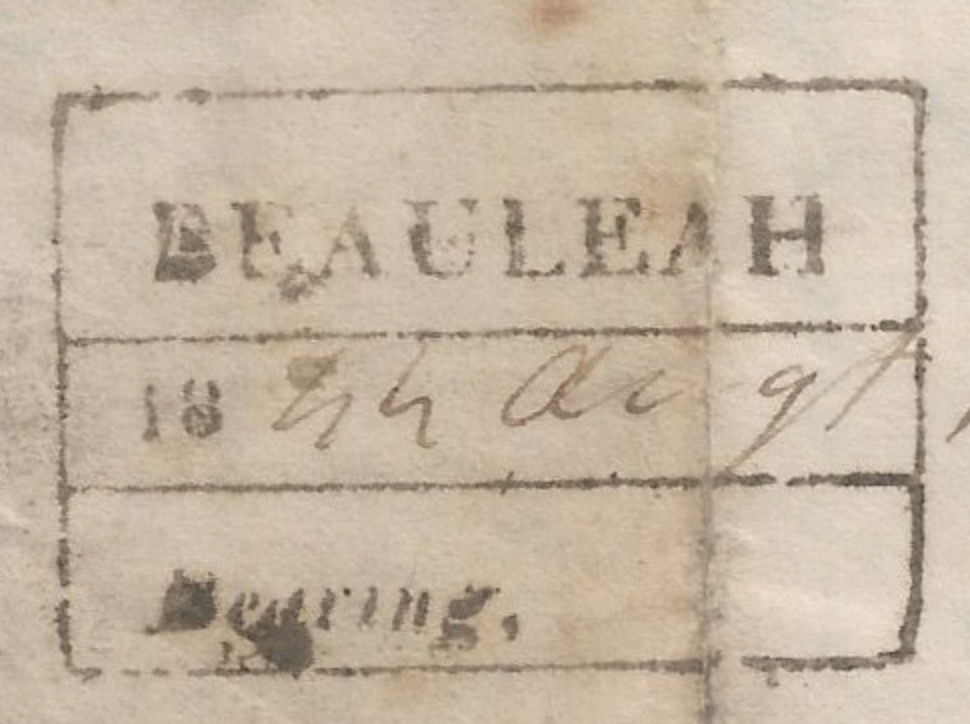 BEAULEAH
18 Augt
Bearing,